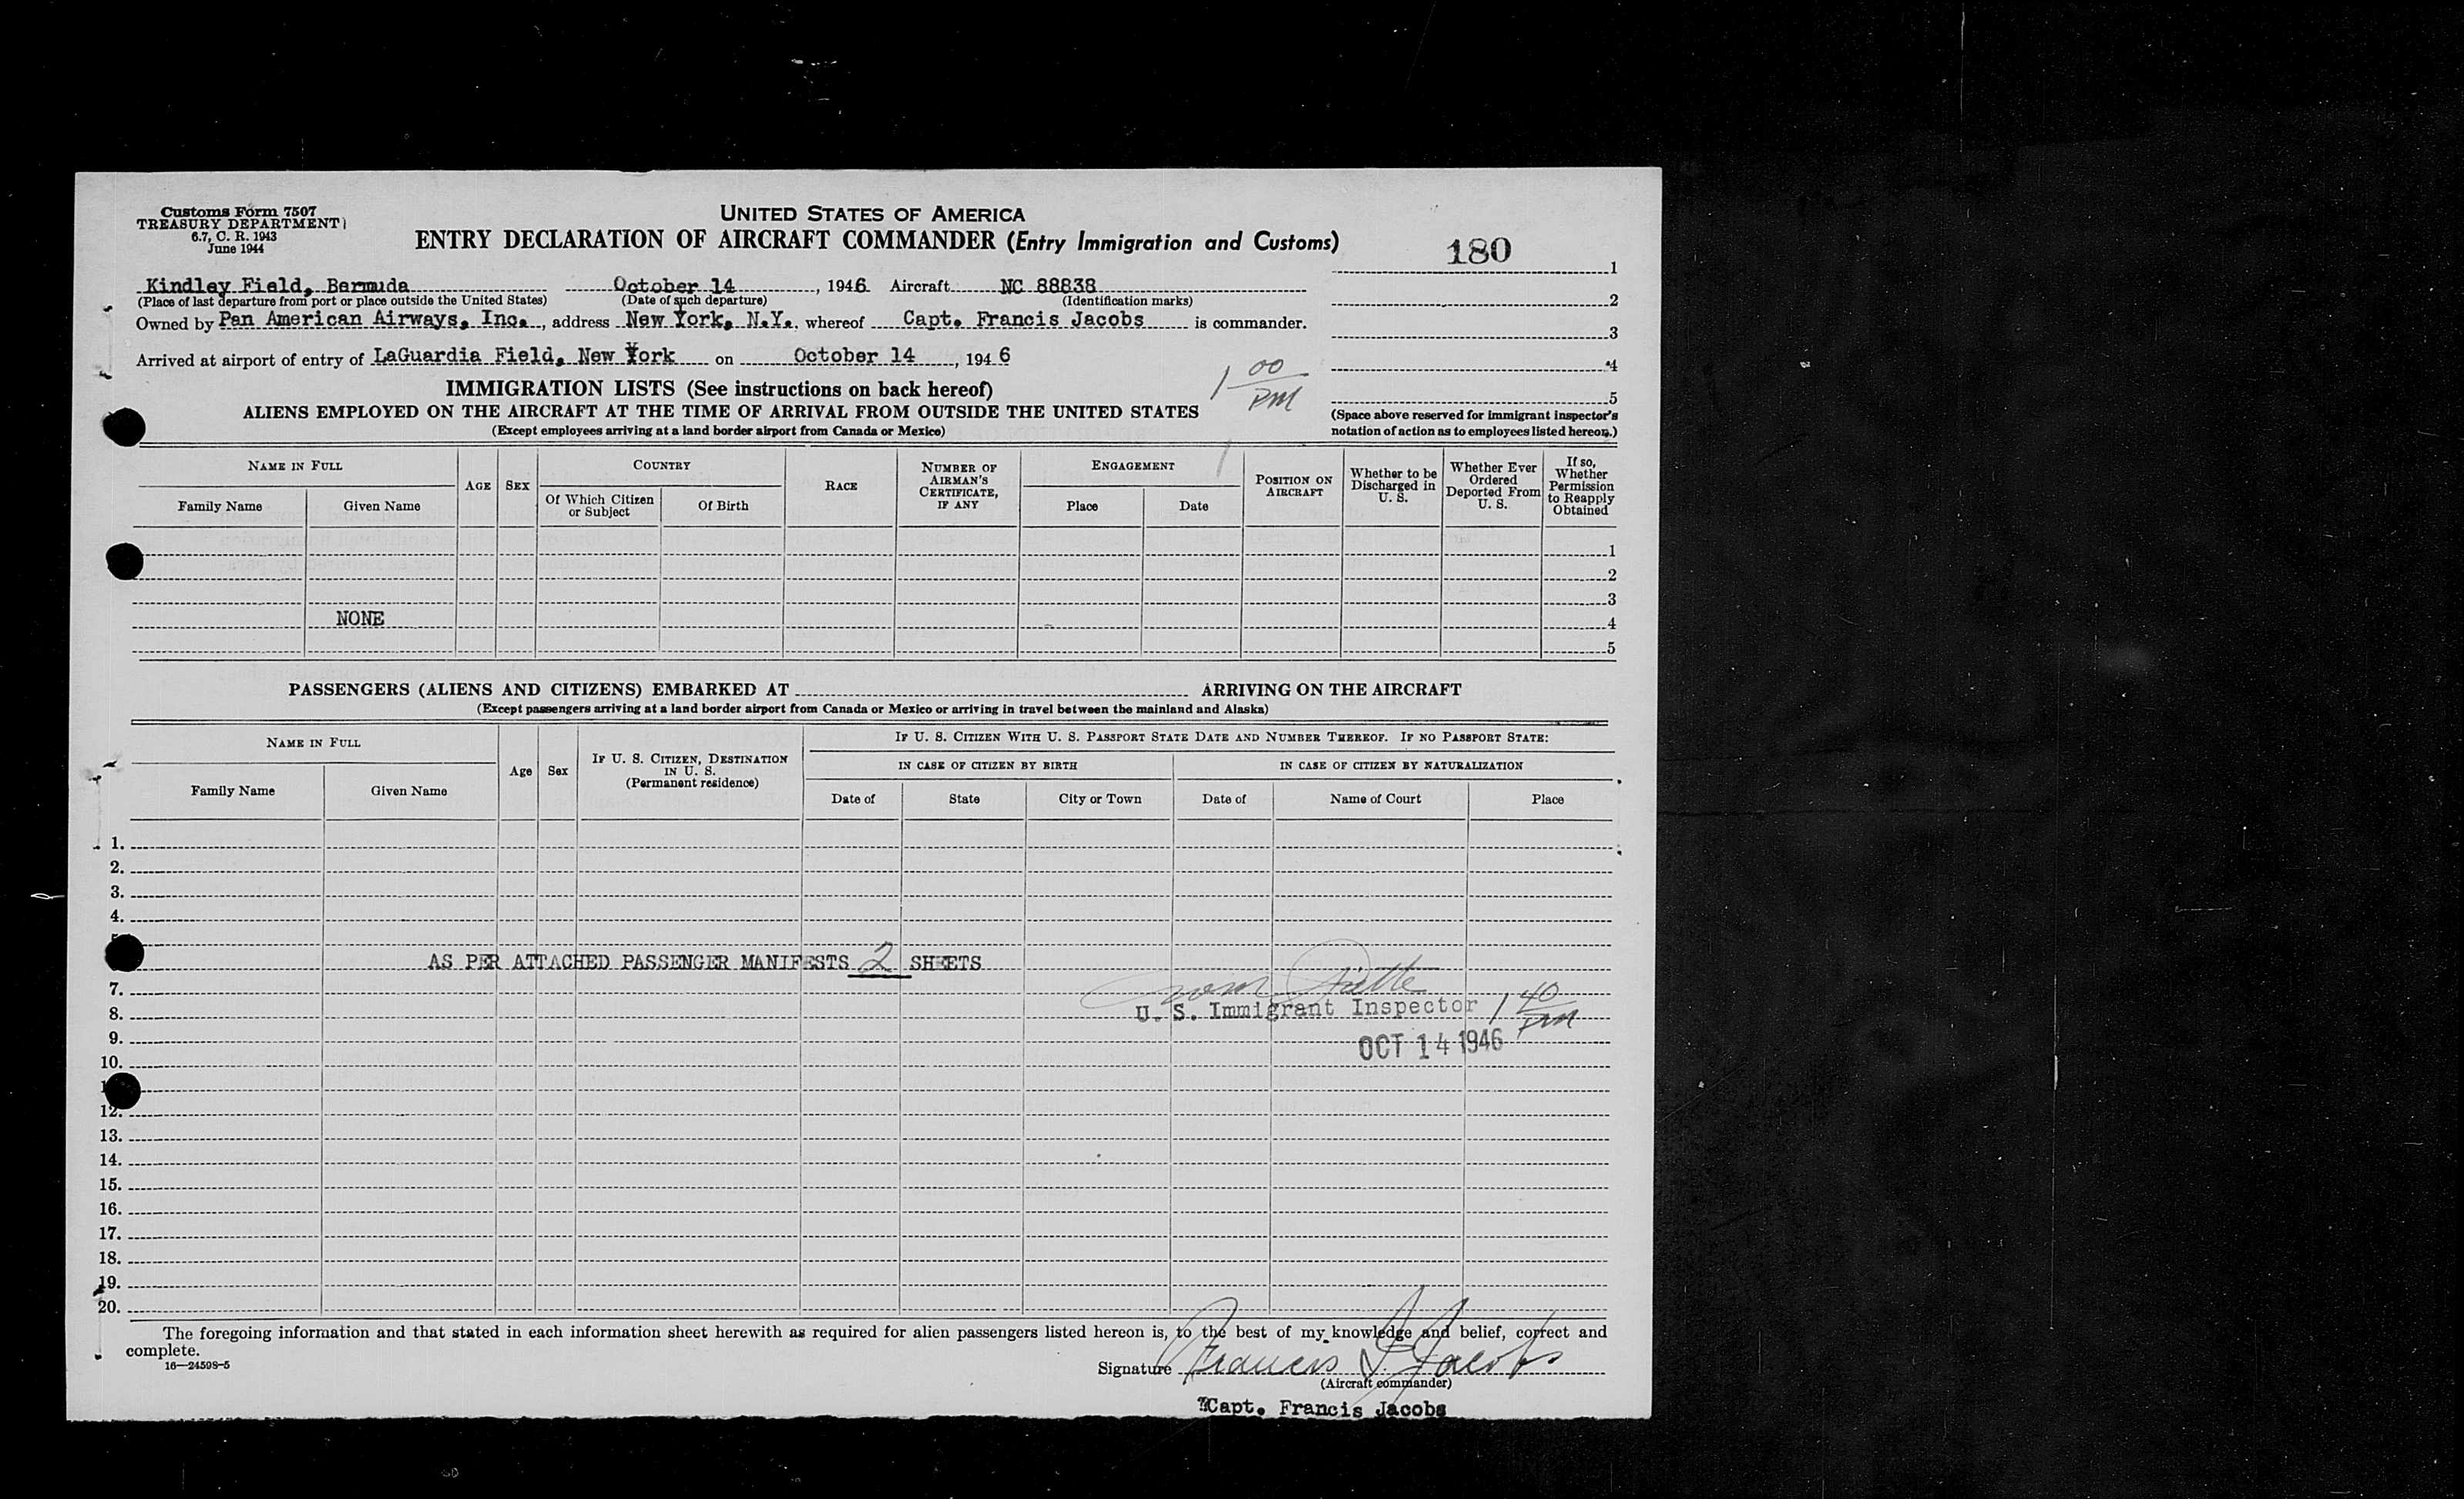 Customs Form 7507
TREASURY DEPARTMENT
6.7, C. R. 1943
June 1944
UNITED STATES OF AMERICA
ENTRY DECLARATION OF AIRCRAFT COMMANDER (Entry Immigration and Customs)
180
1
Kindley Field, Bermuda October 14, 1946 Aircraft NC 88838
(Place of last departure from port or place outside the United States) (Date of such departure) (Identification marks)
2
Owned by Pan American Airways, Inc., address New York, N.Y., whereof Capt. Francis Jacobs is commander.
3
Arrived at airport of entry of LaGuardia Field, New York on October 14, 1946
4
1 00 PM
5
IMMIGRATION LISTS (See instructions on back hereof)
ALIENS EMPLOYED ON THE AIRCRAFT AT THE TIME OF ARRIVAL FROM OUTSIDE THE UNITED STATES
(Except employees arriving at a land border airport from Canada or Mexico)
(Space above reserved for immigrant inspector's
notation of action as to employees listed hereon.)
NAME IN FULL
Family Name Given Name
AGE
SEX
COUNTRY
Of Which Citizen or Subject
Of Birth
RACE
NUMBER OF AIRMAN'S CERTIFICATE, IF ANY
ENGAGEMENT
Place Date
POSITION ON AIRCRAFT
Whether to be Discharged in U. S.
Whether Ever Ordered Deported From U. S.
If so, Whether Permission to Reapply Obtained
1
2
3
NONE 4
5
PASSENGERS (ALIENS AND CITIZENS) EMBARKED AT ARRIVING ON THE AIRCRAFT
(Except passengers arriving at a land border airport from Canada or Mexico or arriving in travel between the mainland and Alaska)
NAME IN FULL
Family Name Given Name
Age
Sex
IF U. S. CITIZEN, DESTINATION IN U. S.
(Permanent residence)
IF U. S. CITIZEN WITH U. S. PASSPORT STATE DATE AND NUMBER THEREOF. IF NO PASSPORT STATE:
IN CASE OF CITIZEN BY BIRTH IN CASE OF CITIZEN BY NATURALIZATION
Date of State City or Town Date of Name of Court Place
1.
2.
3.
4.
AS PER ATTACHED PASSENGER MANIFESTS 2 SHEETS
7.
8. U. S. Immigrant Inspector 1 40 PM
9. OCT 14 1946
10.
12.
13.
14.
15.
16.
17.
18.
19.
20.
The foregoing information and that stated in each information sheet herewith as required for alien passengers listed hereon is, to the best of my knowledge and belief, correct and
complete.
16—24598-5
Signature Francis J Jacobs
(Aircraft commander)
Capt. Francis Jacobs